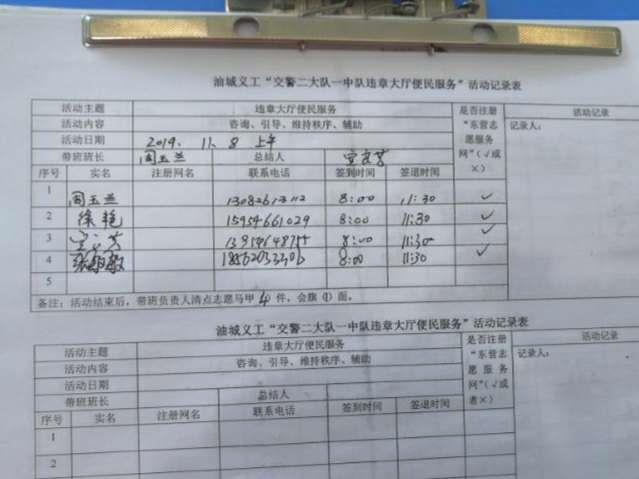 油城义工“交警二大队一中队违章大厅便民服务”活动记录表
活动主题 违章大厅便民服务 是否注册“东营志愿服务网”(√或×) 活动记录
活动内容 咨询、引导、维持秩序、辅助 记录人:
活动日期 2019. 11. 8 上午
带班班长 周玉兰 总结人
序号 实名 注册网名 联系电话 签到时间 签退时间
1 周玉兰 8:00 11:30 √
2 徐艳 15954661029 8:00 11:30 √
3 8:00 11:30 √
4 8:00 11:30 √
5
备注:活动结束后,带班负责人清点志愿马甲 4 件,会旗 (1) 面。
油城义工“交警二大队一中队违章大厅便民服务”活动记录表
活动主题 违章大厅便民服务 是否注册“东营志愿服务网”(√或者×) 活动记录
活动内容 咨询、引导、维持秩序、辅助 记录人:
活动日期
带班班长 总结人
序号 实名 注册网名 联系电话 签到时间 签退时间
1
2